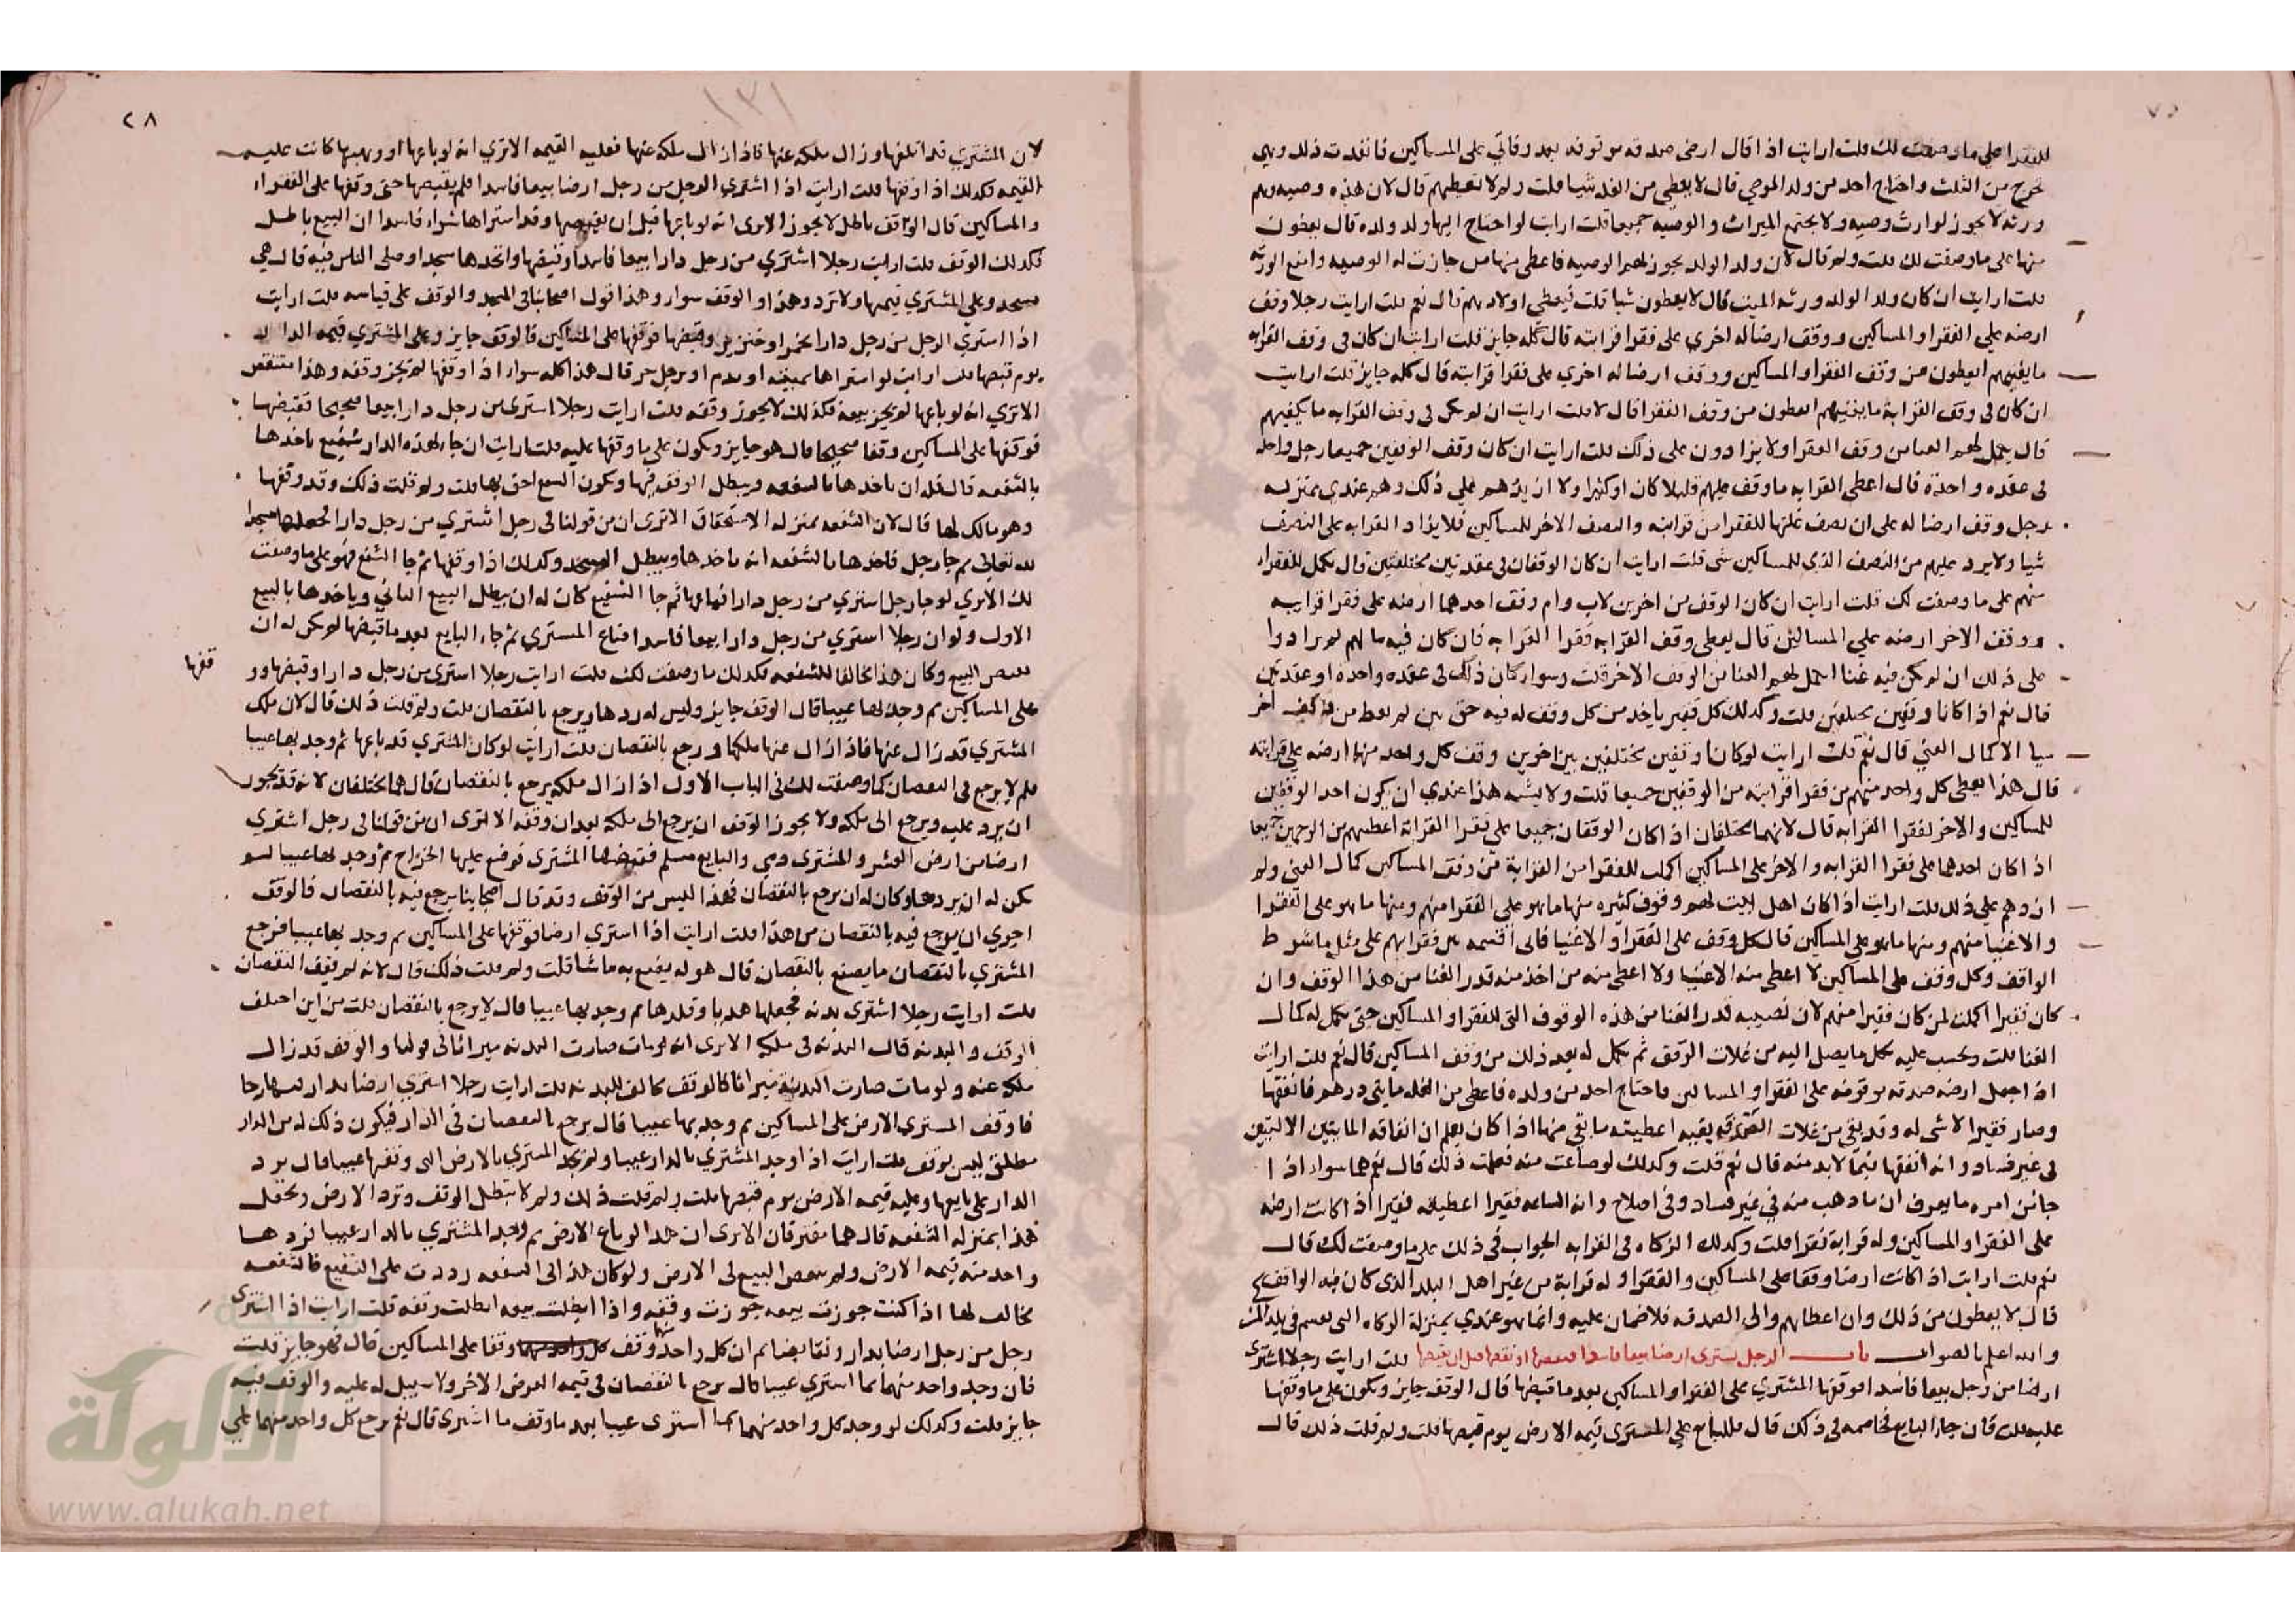 للفقرا على ما وصفت لك قلت ارايت اذا قال ارضى صدقه موقوفه بعد وفاتي على المساكين فانفذت ذلك وهي
تخرج من الثلث واحتاج احد من ولد الموصي قال لا يعطي من الغله شيا قلت ولم لا تعطيهم قال لان هذه وصيه وهم
ورثه لا يجوز لوارث وصيه ولا يجتمع الميراث والوصيه جميعا قلت ارايت لو احتاج اليها ولد ولده قال يعطون
منها على ما وصفت لك قلت ولم قال لان ولد الولد يجوز لهم الوصيه فاعطى منها من جازت له الوصيه وامنع الورثه
قلت ارايت ان كان ولد الولد ورثه الميت قال لا يعطون شيا قلت فيعطي اولادهم قال نعم قلت ارايت رجلا وقف
ارضه علي الفقرا والمساكين ووقف ارضا له اخري على فقرا قرابته قال كله جايز قلت ارايت ان كان في وقف القرابه
ما يغنيهم ايعطون من وقف الفقرا والمساكين ووقف ارضا له اخري على فقرا قرابته قال كله جايز قلت ارايت
ان كان في وقف القرابة ما يغنيهم ايعطون من وقف الفقرا قال لا قلت ارايت ان لم يكن في وقف القرابه ما يكفيهم
قال يكمل لهم الغنا من وقف الفقرا ولا يزادون على ذلك قلت ارايت ان كان وقف الوقفين جميعا رجل واحد
في عقده واحدة قال اعطي القرابه ما وقف عليهم قليلا كان او كثيرا ولا ازيدهم علي ذلك وهم عندي بمنزله
رجل وقف ارضا له على ان نصف غلتها للفقرا من قرابته والنصف الاخر للمساكين فلا يزاد القرابه على النصف
شيا ولا يرد عليهم من النصف الذي للمساكين شى قلت ارايت ان كان الوقفان في عقدتين مختلفتين قال يكمل للفقراء
منهم على ما وصفت لك قلت ارايت ان كان الوقف من اخرين لاب وام وقف احدهما ارضه على فقرا قرابته
ووقف الاخر ارضه علي المساكين قال يعطى وقف القرابه فقرا القرابه فان كان فيه مالهم لم يزادوا
على ذلك ان لم يكن فيه غنا اكمل لهم الغنا من الوقف الاخر قلت وسوا كان ذلك في عقده واحده او عقدتين
قال نعم اذا كانا وقفين مختلفين قلت وكذلك كل فقير ياخذ من كل وقف له فيه حق من لم يعط من وقف اخر
شيا الا كمال الغني قال نعم قلت ارايت لو كانا وقفين مختلفين بين اخرين وقف كل واحد منهما ارضه على قرابته
قال هذا يعطى كل واحد منهم من فقرا قرابته من الوقفين جميعا قلت ولا يشبه هذا عندي ان يكون احد الوقفين
للمساكين والاخر لفقرا القرابه قال لانهما يختلفان اذا كان الوقفان جميعا على فقرا القرابة اعطيهم من الوجهين جميعا
اذا كان احدهما على فقرا القرابه والاخر على المساكين اكملت للفقرا من القرابة من وقف المساكين كمال الغنى ولم
ازدهم على ذلك قلت ارايت اذا كان اهل البيت لهم وقوف كثيره منها ما هو علي الفقرا منهم ومنها ما هو على الفقرا
والاغنيا منهم ومنها ما هو على المساكين قال كل وقف على الفقرا والاغنيا فاني اقسمه بين فقرايهم على مثل ما شرط
الواقف وكل وقف على المساكين لا اعطى منه الاغنيا ولا اعطى منه من اخذ منه قدر الغنا من هذا الوقف وان
كان فقيرا اكملت لمن كان فقيرا منهم لان نصيبه قدر الغنا من هذه الوقوف التي للفقرا والمساكين حتى يكمل له كمال
الغنا قلت ويحسب عليه بكل ما يصل اليه من غلات الوقف ثم يكمل له بعد ذلك من وقف المساكين قال نعم قلت ارايت
اذا جعل ارضه صدقه موقوفه على الفقرا والمساكين فاحتاج احد من ولده فاعطى من الغله مايتى درهم فانفقها
وصار فقيرا لا شى له وقد بقي من غلات الصدقه بقيه اعطيته ما بقي منها اذا كان يعلم ان انفاقه المايتين الاوليتين
في غير فساد وانه انفقها فيما لا بد منه قال نعم قلت وكذلك لو ضاعت منه فعلمت ذلك قال نعم هما سواء اذا
جا من امره ما يعرف ان ما ذهب منه في غير فساد وفي اصلاح وانه الساعه فقيرا اعطيته فقيرا اذا كانت ارضه
على الفقرا والمساكين وله قرابة فقرا قلت وكذلك الزكاه في القرابه الجواب في ذلك على ما وصفت لك قال
نعم قلت ارايت اذا كانت ارضا وقفا على المساكين والفقرا وله قرابة من غير اهل البلد الذي كان فيه الواقف
قال لا يعطون من ذلك وان اعطاهم والى الصدقه فلا ضمان عليه وانما هو عندي بمنزلة الزكاه التي تقسم في بلد المزكى
والله اعلم بالصواب باب الرجل يشترى ارضا بيعا فاسدا فيقبضها او يقفها قبل ان يقبضها قلت ارايت رجلا اشترى
ارضا من رجل بيعا فاسدا فوقفها المشتري على الفقرا والمساكين بعد ما قبضها قال الوقف جايز وتكون على ما وقفها
عليه قلت فان جاء البايع فخاصمه في ذلك قال فللبايع علي المشترى قيمه الارض يوم قبضها قلت ولم قلت ذلك قال
٢٨
١٣١
لان المشتري قد اتلفها وزال ملكه عنها فاذا زال ملكه عنها فعليه القيمه الا تري انه لو باعها او وهبها كانت عليه
القيمه وكذلك اذا اوقفها قلت ارايت اذا اشترى الرجل من رجل ارضا بيعا فاسدا فلم يقبضها حتى وقفها على الفقراء
والمساكين قال الوقف باطل لا يجوز الا ترى انه لو باعها قبل ان يقبضها وقد استراها شراء فاسدا ان البيع باطل
فكذلك الوقف قلت ارايت رجلا اشتري من رجل دارا بيعا فاسدا وقبضها واتخذها مسجدا وصلى الناس فيه قال هي
مسجد وعلي المشتري قيمتها ولا ترد وهذا والوقف سوا وهذا قول اصحابنا في المسجد والوقف على قياسه قلت ارايت
اذا اشتري الرجل من رجل دارا بخمر او خنزير وقبضها فوقفها على المساكين قال الوقف جايز وعلى المشتري قيمه الدار
يوم قبضها قلت ارايت لو اشتراها بميته او بدم او برجل حر قال هذا كله سواء اذا اوقفها لم يجز وقفه وهذا منتقض
الا تري انه لو باعها لم يجز بيعه فكذلك لا يجوز وقفه قلت ارايت رجلا اشترى من رجل دارا بيعا صحيحا فقبضها
فوقفها على المساكين وقفا صحيحا قال هو جايز وتكون على ما وقفها عليه قلت ارايت ان جاء لهذه الدار شفيع ياخذها
بالشفعه قال فله ان ياخذها بالشفعه ويبطل الوقف فيها وتكون الشفيع احق بها قلت ولم قلت ذلك وقد وقفها
وهو مالك لها قال لان الشفعه بمنزله الاستحقاق الا ترى ان من قولنا في رجل اشتري من رجل دارا فجعلها مسجدا
لله تعالى ثم جا رجل فاخذها بالشفعه انه ياخذها ويبطل المسجد وكذلك اذا اوقفها ثم جا الشفيع فهو على ما وصفت
لك الا تري لو جا رجل اشتري من رجل دارا فباعها ثم جا الشفيع كان له ان يبطل البيع الثاني وياخذها بالبيع
الاول ولو ان رجلا اشتري من رجل دارا بيعا فاسدا فباع المشتري ثم جاء البايع بعد ما قبضها لم يكن له ان
ينقض البيع وكان هذا مخالفا للشفعه فكذلك ما وصفت لك قلت ارايت رجلا اشترى من رجل دارا وقبضها وو
قفها
على المساكين ثم وجد لها عيبا قال الوقف جايز وليس له ردها ويرجع بالنقصان قلت ولم قلت ذلك قال لان ملك
المشتري قد زال عنها فاذا زال عنها ملكها ورجع بالنقصان قلت ارايت لو كان المشتري قد باعها ثم وجد بها عيبا
فلم لا يرجع في النقصان كما وصفت لك في الباب الاول اذا زال ملكه يرجع بالنقصان قال هما مختلفان لانه قد يجوز
ان يرد عليه ويرجع الى ملكه ولا يجوز الوقف ان يرجع الى ملكه بعد ان وقفه الا ترى ان من قولنا في رجل اشتري
ارضا من ارض العشر والمشترى ذمي والبايع مسلم فقبضها المشتري فوضع عليها الخراج ثم وجد لها عيبا لم
يكن له ان يردها وكان له ان يرجع بالنقصان فهذا اليس من الوقف وقد قال اصحابنا يرجع فيه بالنقصان فالوقف
احرى ان يرجع فيه بالنقصان من هذا قلت ارايت اذا اشتري ارضا فوقفها على المساكين ثم وجد بها عيبا فرجع
المشتري بالنقصان ما يصنع بالنقصان قال هو له يصنع به ما شا قلت ولم قلت ذلك قال لانه لم يقف النقصان
قلت ارايت رجلا اشترى بدنه فجعلها هديا وقلدها ثم وجد بها عيبا قال لا يرجع بالنقصان قلت من اين اختلف
الوقف والبدنه قال البدنه في ملكه الا ترى انه لو مات صارت البدنه ميراثا في قولنا والوقف قد زال
ملكه عنه ولو مات صارت البدنة ميراثا فالوقف مخالف للبدنه قلت ارايت رجلا اشتري ارضا بدار
فاوقف المشتري الارض على المساكين ثم وجد بها عيبا قال يرجع بالنقصان في الدار فيكون ذلك له من الدار
مطلق ليس بوقف قلت ارايت اذا وجد المشتري بالدار عيبا ولم يجد المشتري بالارض التي وقفها عيبا قال يرد
الدار على بايعها وعليه قيمه الارض يوم قبضها قلت ولم قلت ذلك ولم لا يبطل الوقف وترد الارض وتجعل
هذا بمنزله الشفعه قال هما مفترقان الا ترى ان هذا لو باع الارض ثم وجد المشتري بالدار عيبا فردها
واخذ منه قيمه الارض ولم ينقض البيع في الارض ولو كان هذا الى الشفعه رددت على الشفيع فالشفعه
مخالف لها اذا كنت جوزت بيعه جوزت وقفه واذا ابطلت بيعه ابطلت وقفه قلت ارايت اذا اشترى
رجل من رجل ارضا بدار وتقابضا ثم ان كل واحد منهما وقف وقفا على المساكين قال فهو جايز قلت
فان وجد واحد منهما بما اشتري عيبا قال يرجع بالنقصان في قيمه العرض الاخر ولا سبيل له عليه والوقف فيه
جايز قلت وكذلك لو وجد كل واحد منهما بما اشترى عيبا بعد ما وقف ما اشترى قال نعم يرجع كل واحد منهما على
الألوكة
www.alukah.net